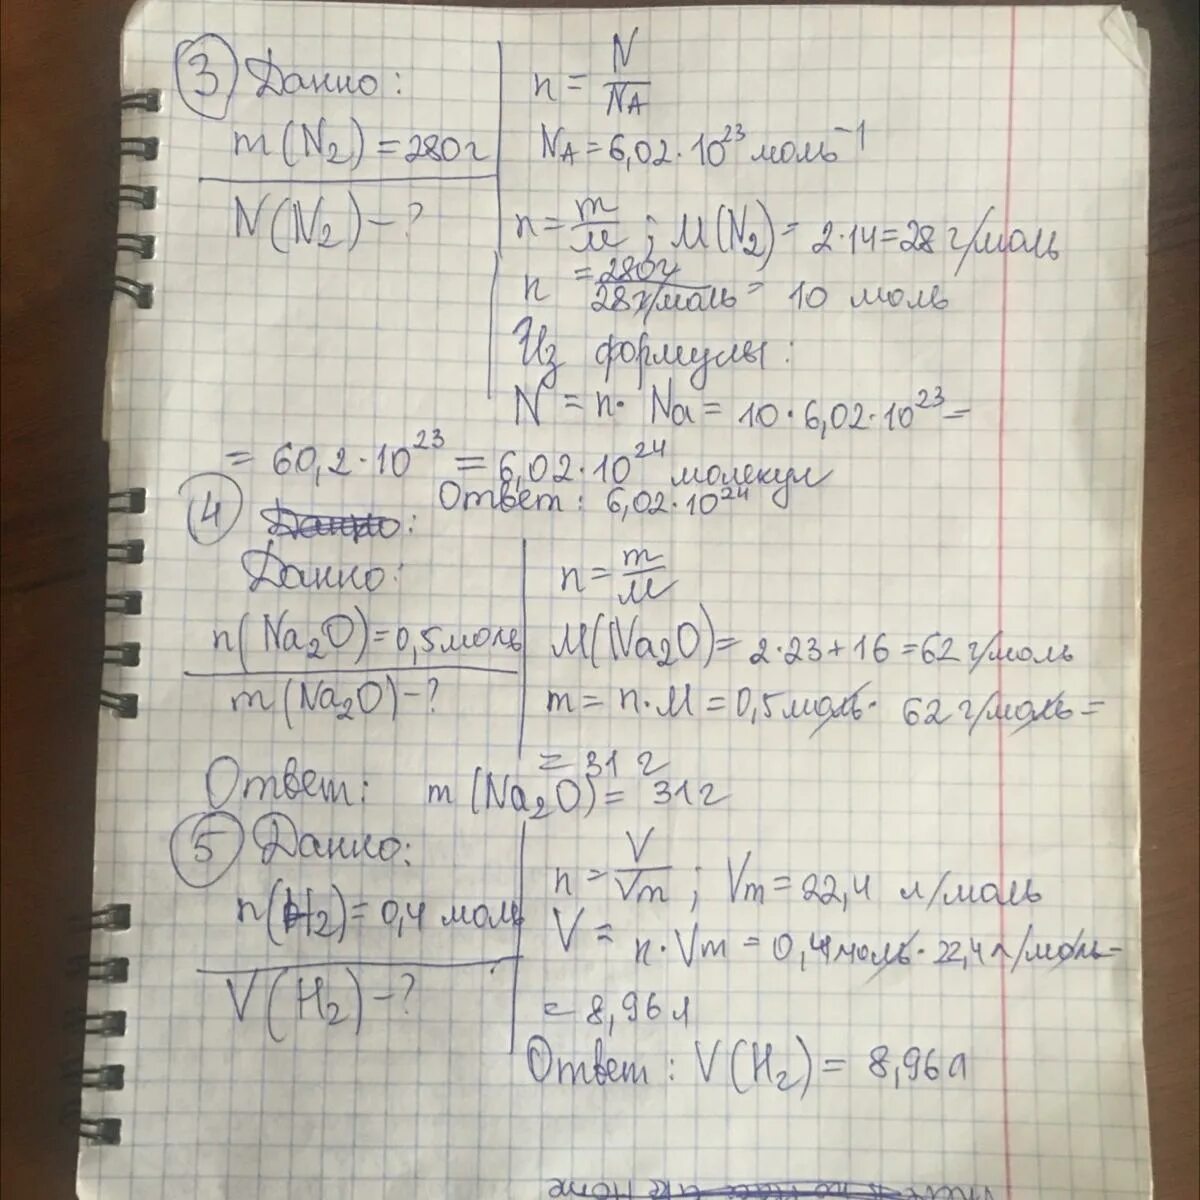 3 Дано:
m(N₂) = 280г
N(N₂) - ?
n = N/NA
NA = 6,02·10²³ моль⁻¹
n = m/M ; M(N₂) = 2·14 = 28 г/моль
n = 280г/28г/моль = 10 моль
Из формулы:
N = n· Na = 10·6,02·10²³ =
= 60,2·10²³ = 6,02·10²⁴ молекул
Ответ: 6,02·10²⁴
4 Дано:
Дано:
n(Na₂O) = 0,5моль
m(Na₂O) - ?
n = m/M
M(Na₂O) = 2·23+16 = 62 г/моль
m = n·M = 0,5 моль· 62 г/моль =
= 31 г
Ответ: m(Na₂O) = 31г
5 Дано:
n(H₂) = 0,4 моль
V(H₂) - ?
n = V/Vm ; Vm = 22,4 л/моль
V = n·Vm = 0,4моль·22,4л/моль=
= 8,96 л
Ответ: V(H₂) = 8,96л